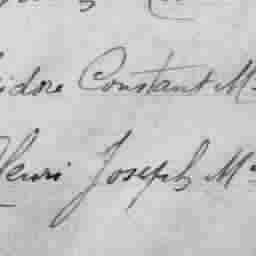 idore Constant M
Henri Joseph M